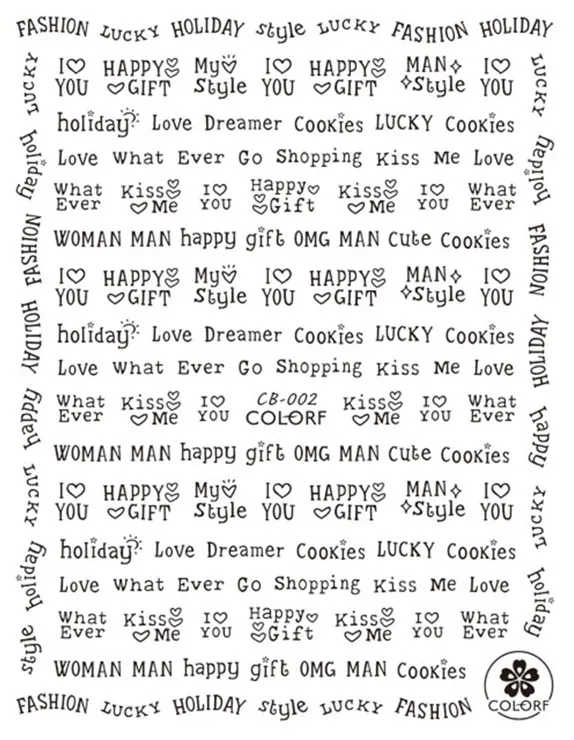 FASHION LUCKY HOLIDAY style LUCKY FASHION HOLIDAY
LUCKY
holiday
FASHION
HOLIDAY
happy
LUCKY
holiday
style
I♡ HAPPY My♡ I♡ HAPPY MAN✧ I♡
YOU ♡GIFT Style YOU ♡GIFT ✧Style YOU
holiday Love Dreamer Cookies LUCKY Cookies
Love What Ever Go Shopping Kiss Me Love
What Kiss I♡ Happy♡ Kiss I♡ What
Ever ♡Me YOU Gift ♡Me YOU Ever
WOMAN MAN happy gift OMG MAN Cute Cookies
I♡ HAPPY My♡ I♡ HAPPY MAN✧ I♡
YOU ♡GIFT Style YOU ♡GIFT ✧Style YOU
holiday Love Dreamer Cookies LUCKY Cookies
Love What Ever Go Shopping Kiss Me Love
What Kiss I♡ CB-002 Kiss I♡ What
Ever ♡Me YOU COLORF ♡Me YOU Ever
WOMAN MAN happy gift OMG MAN Cute Cookies
I♡ HAPPY My♡ I♡ HAPPY MAN✧ I♡
YOU ♡GIFT Style YOU ♡GIFT ✧Style YOU
holiday Love Dreamer Cookies LUCKY Cookies
Love What Ever Go Shopping Kiss Me Love
What Kiss I♡ Happy♡ Kiss I♡ What
Ever ♡Me YOU Gift ♡Me YOU Ever
WOMAN MAN happy gift OMG MAN Cookies
LUCKY
holiday
FASHION
HOLIDAY
happy
LUCKY
holiday
FASHION LUCKY HOLIDAY style LUCKY FASHION
COLORF